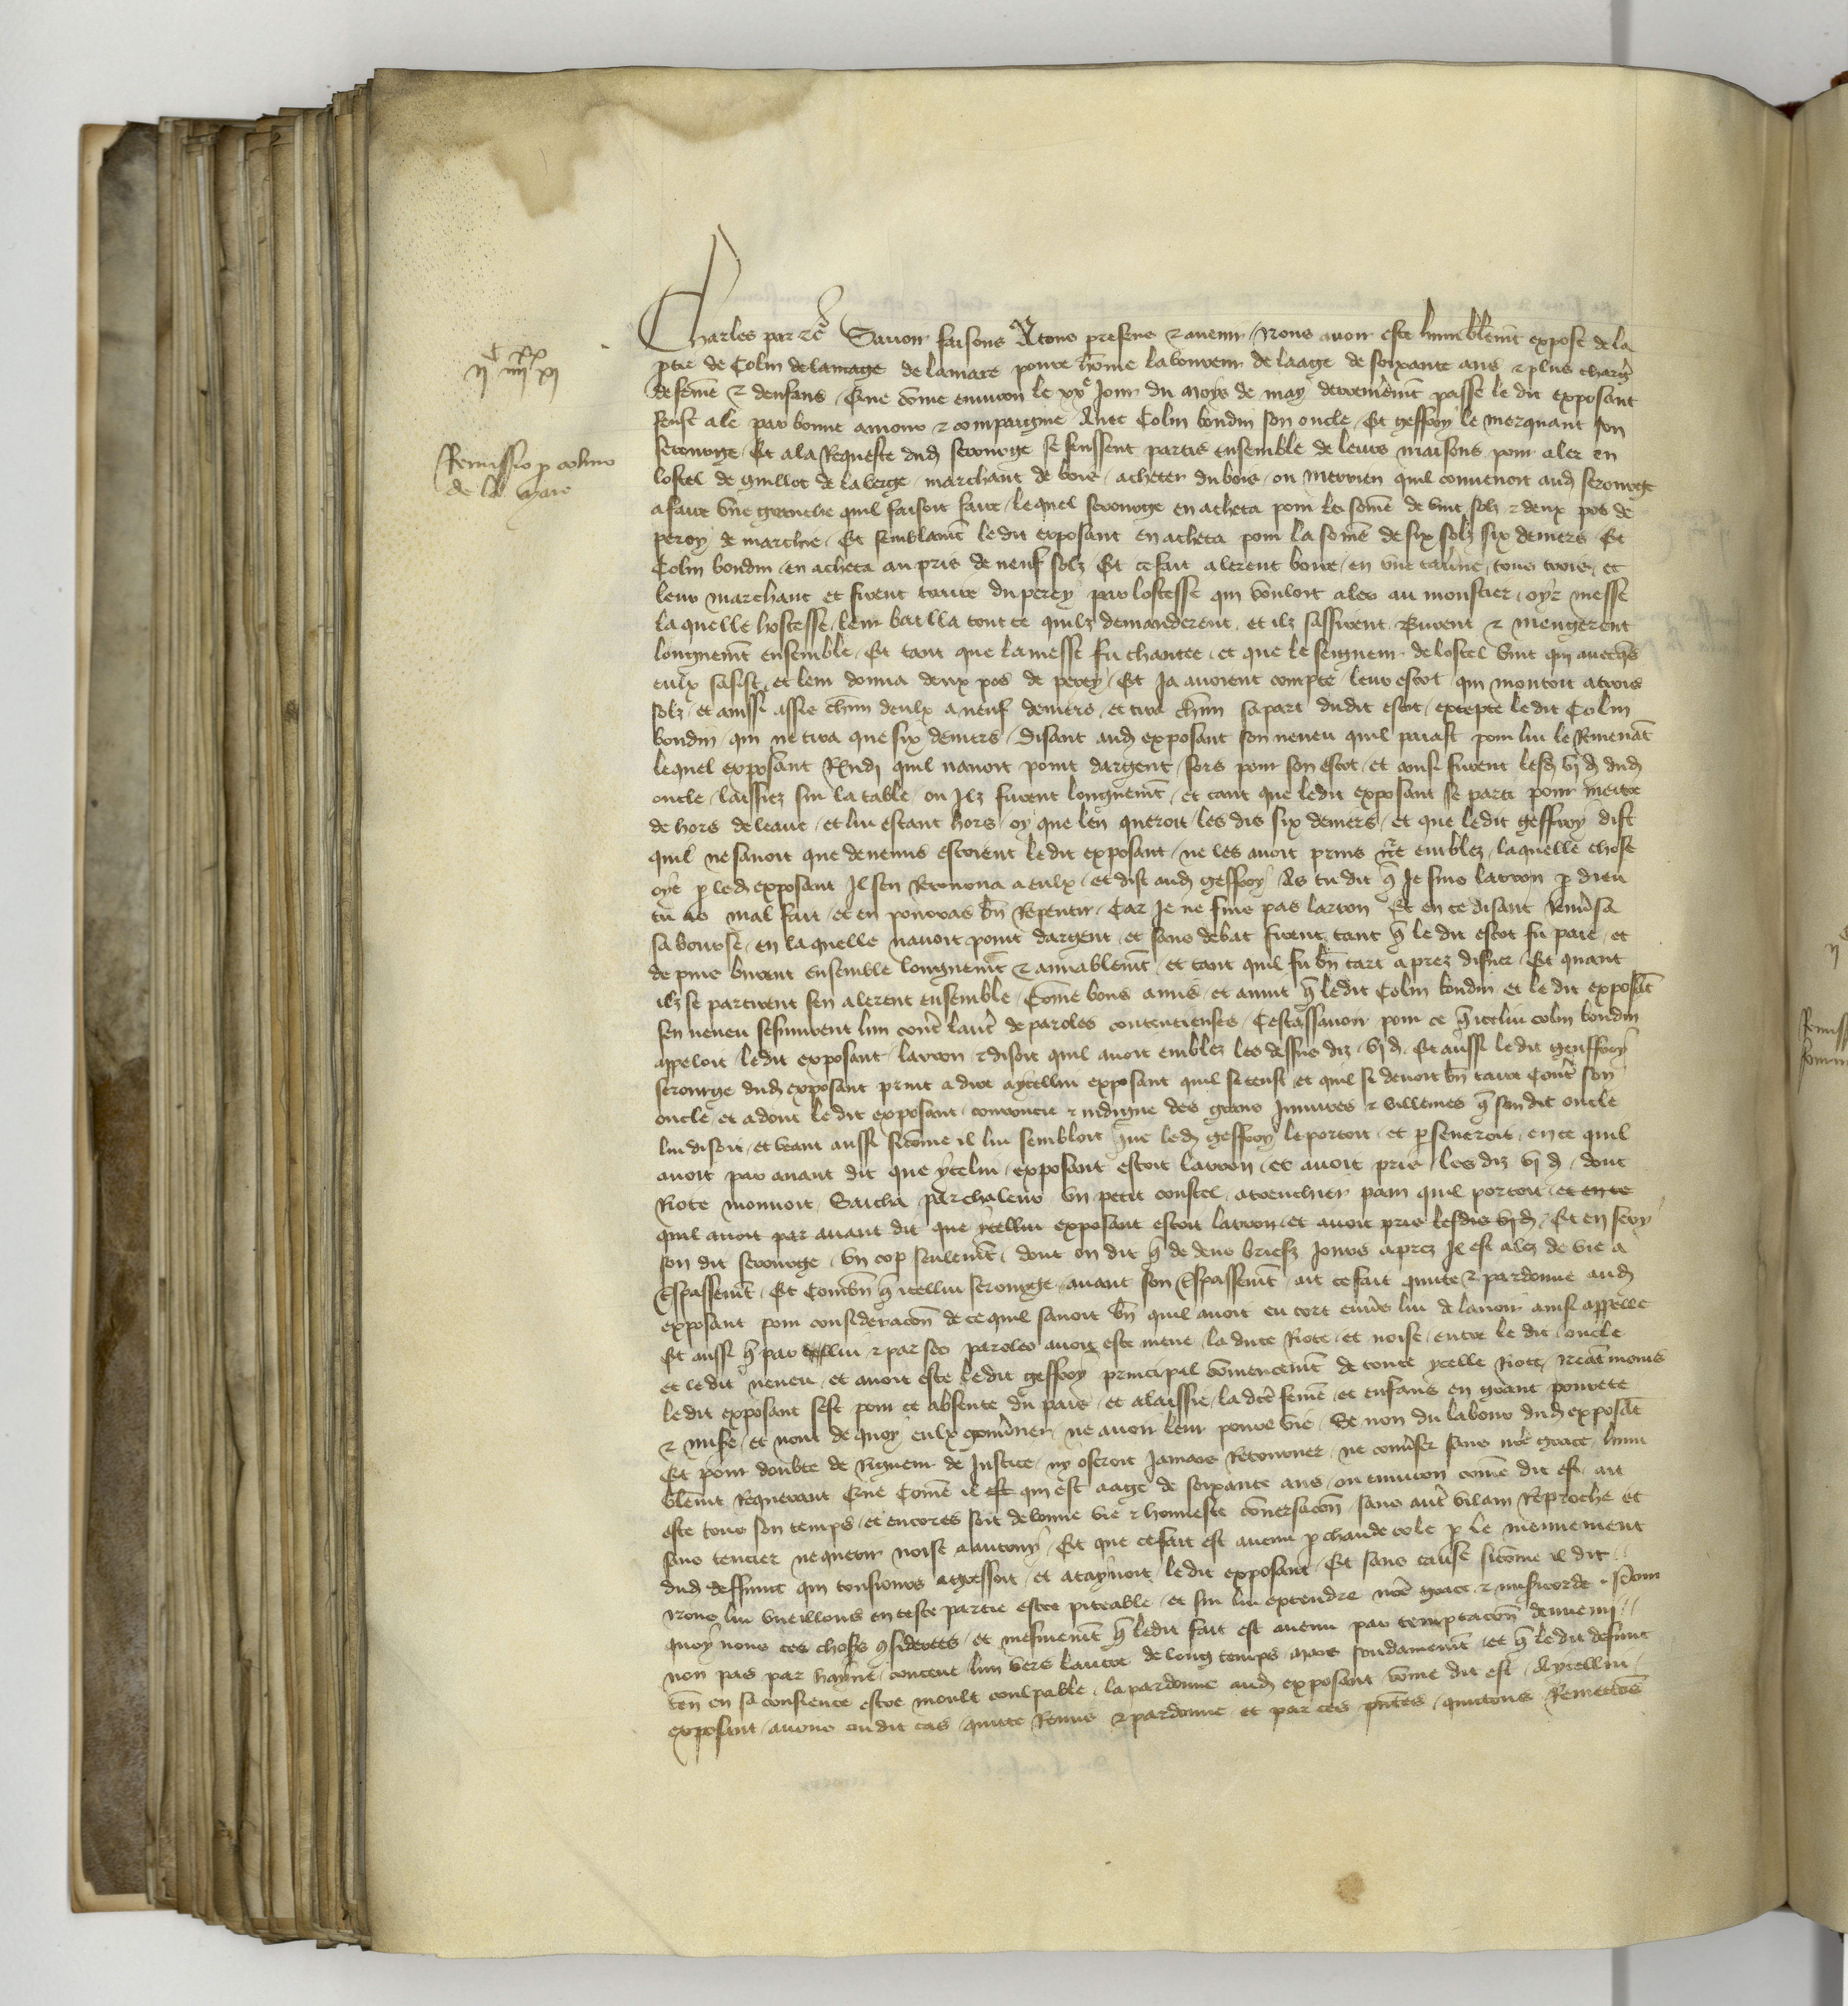 Charles par etc Savoir faisons A tous presens et avenir Nous avoir este humblemt expose de la
ptie de Colin de lamage de lamare povre home laboureur de laage de soixante ans et plus chargé
de feme et denfans Que come environ le xxe jour du moys de may derrenieremt passé le dit exposant
feust ale par bonne amour et compaignie Avec Colin boudin son oncle Et geffroy le merquant son
serourge Et a la Requeste dud serourge se feussent partis ensemble de leurs maisons pour aler en
lostel de guillot de laberge marchant de bois acheter du bois ou merrien quil convenoit aud serourge
a faire une granche quil faisoit faire lequel serourge en acheta pour la some de vint solz et deux pos de
perey de marchie Et semblamt le dit exposant en acheta pour la some de six solz six deniers Et
Colin boudin en acheta au pris de neuf solz Et ce fait alerent boire en une taverne tous trois et
leur marchant et firent traire du perey par lostesse qui vouloit aler au moustier oyr messe
la quelle hostesse leur bailla tout ce quilz demanderent et ilz sassirent Burent et mengerent
longuemt ensemble Et tant que la messe fu chantee et que le seigneur de lostel vint qui avecqs
eulx sasist et leur donna deux pos de perey Et ja avoient compté leur escot qui montoit a trois
solz et aussi assis chun deulx a neuf deniers et tira chun sa part dudit escot excepte le dit Colin
boudin qui ne tira que six deniers Disant aud exposant son neveu quil paiast pour lui le Remenat
lequel exposant Rnd quil navoit point dargent fors pour son escot et ainsi furent lesd vj d dud
oncle laissiez sur la table ou Ilz furent longuemt et tant que le dit exposant se parti pour mettre
de hors de leaue et lui estant hors oy que len queroit les dis six deniers et que le dit geffroy dist
quil ne savoit que devenus estoient le dit exposant ne les avoit prins ne emblez laquelle chose
oye p led exposant Il sen Retourna a eulx et dist aud geffroy As tu dit q Je suis larron p dieu
tu as mal fait et en pourras bn Repentir Car Je ne suis pas larron Et en ce disant Renvsa
sa bourse en laquelle navoit point dargent et sans debat furent tant q le dit escot fu paie et
de puis burent ensemble longuemt et amiablemt et tant quil fu bn tart aprez disner Et quant
ilz se partirent sen alerent ensemble Come bons amis et avint q le dit Colin boudin et le dit exposat
sen neveu sesmurent lun contr lautr de paroles contentieuses Cestassavoir pour ce q icelui colin boudin
appeloit le dit exposant larron et disoit quil avoit emblez les dessus diz vj d Et aussi le dit geuffroy
serourge dud exposant print a dire a ycellui exposant quil se teust et quil se devoit bn taire Contr son
oncle et adont le dit exposant courroucie et indigne des grans Injures et villenies q son dit oncle
lui disoit et veant aussi sicome il lui sembloit que led geffroy le portoit et pseveroit en ce quil
avoit par avant dit que ycelui exposant estoit larron et avoit pris les diz vj d dont
Riote mouvoit Sacha par chaleur un petit coustel a trenchier pain quil portoit et en ce
quil avoit par avant dit que ycellui exposant estoit larron et avoit pris lesdis vj d Et en fery
son dit serourge un cop seulemt dont on dit q de deux briefz jours aprez Il est alez de vie a
Tspassemt Et Combn q icellui serourge avant son Tspassemt ait ce fait quitte et pardonne aud
exposant pour consideracon de ce quil savoit bn quil avoit eu tort envs lui de lavoir ainsi appelle
Et aussi q par icellui et par ses paroles avoit este meue la dicte Riote et noise entre le dit oncle
et le dit neveu et avoit este le dit geffroy principal comencemt de toute ycelle Riote neatmoins
le dit exposant sest pour ce absente du pais et a laissie la dcte feme et enfans en grant povrete
et misere et nont de quoy eulx gouvner ne avoir leur povre vie Se non du labour dud exposat
Et pour doubte de Rigueur de Justice ny oseroit Jamais Retourner ne convser sans nre grace hum
blemt Requerant Que Come il est qui est aage de soixante ans ou environ come dit est ait
este tous son temps et encores soit de bonne vie et honneste conversacon sans autr vilain Reproche et
sans tencier ne querir noise a autruy Et que ce fait est avenu p chaude cole p le mennement
dud deffunt qui tousiours agressoit et ataynoit le dit exposant Et sans cause sicome il dit
Nous lui vueillons en ceste partie estre piteable et sur lui extendre nre grace et misericorde Pour
quoy nous ces choses gsiderees et mesmemt q ledit fait est avenu par temptacon dennemi
non pas par hayne conceue lun vers lautre de long temps mais soudainemt et q le dit defunt
ten en sa consience estre moult coulpable la pardonne aud exposant come dit est A ycellui
exposant avons ou dit cas quitte Remis et pardonne et par ces pntes quittons Remettos
C xx
ij iiij xj
Remissio p colino
de la mare